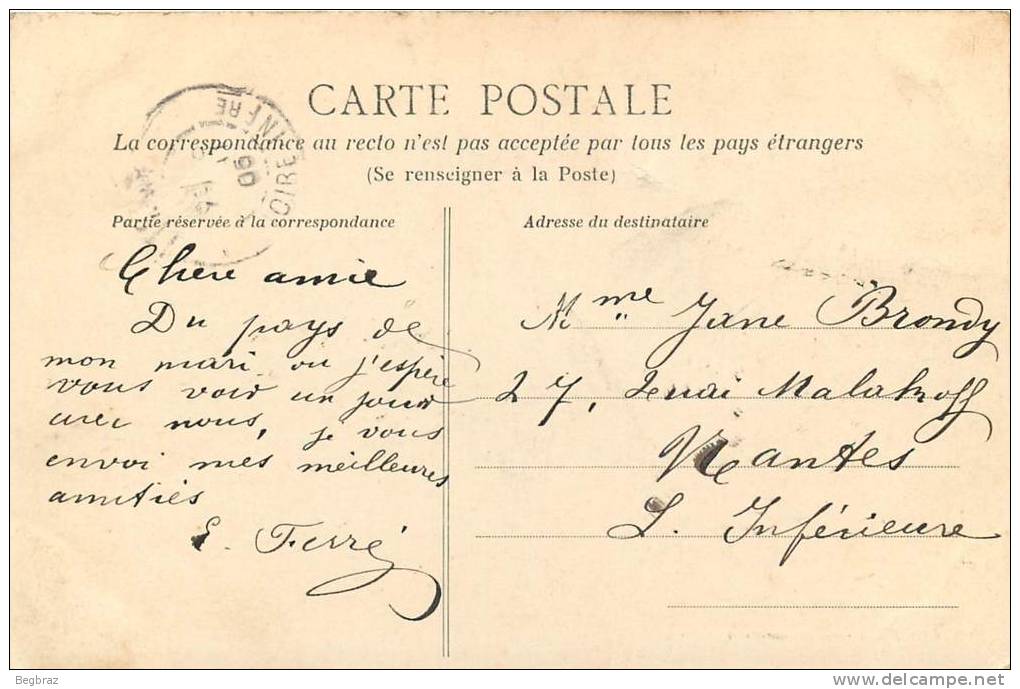 CARTE POSTALE
La correspondance au recto n'est pas acceptée par tous les pays étrangers
(Se renseigner à la Poste)
Partie réservée à la correspondance
Chere amie
Du pays de
mon mari ou j'espère
vous voir un jour
avec nous, je vous
envoi mes meilleures
amitiés
E. Ferré
Adresse du destinataire
Mme Jane Brondy
27, Quai Malakoff
Nantes
L. Inférieure
LOIRE INFRE
06
Begbraz
www.delcampe.net